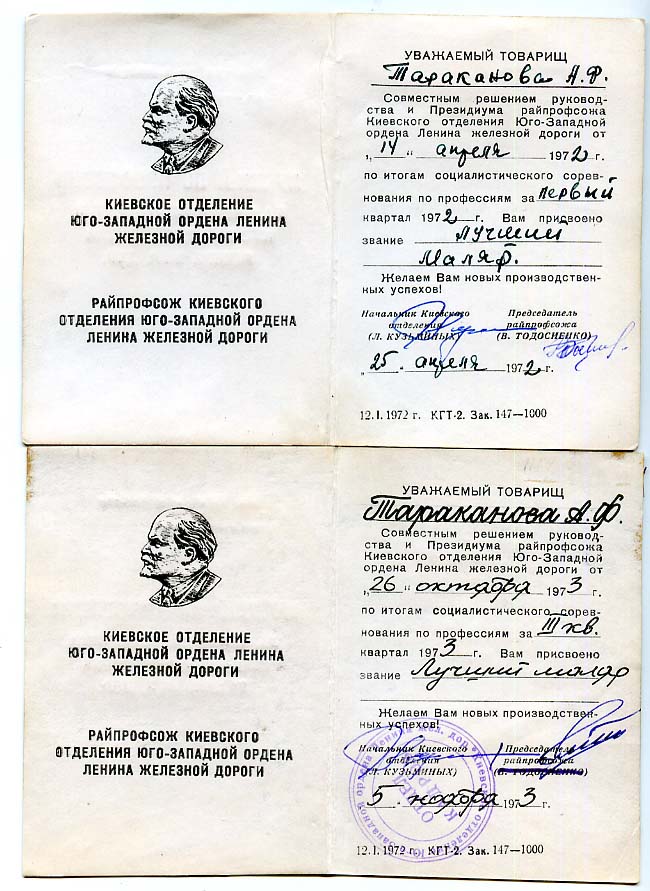 КИЕВСКОЕ ОТДЕЛЕНИЕ
ЮГО-ЗАПАДНОЙ ОРДЕНА ЛЕНИНА
ЖЕЛЕЗНОЙ ДОРОГИ
РАЙПРОФСОЖ КИЕВСКОГО
ОТДЕЛЕНИЯ ЮГО-ЗАПАДНОЙ ОРДЕНА
ЛЕНИНА ЖЕЛЕЗНОЙ ДОРОГИ
УВАЖАЕМЫЙ ТОВАРИЩ
Тараканова А.Ф.
Совместным решением руковод-
ства и Президиума райпрофсожа
Киевского отделения Юго-Западной
ордена Ленина железной дороги от
„14" апреля 1972 г.
по итогам социалистического сорев-
нования по профессиям за первый
квартал 1972 г. Вам присвоено
звание Лучший
Маляр.
Желаем Вам новых производствен-
ных успехов!
Начальник Киевского Председатель
отделения райпрофсожа
(Л. КУЗЬМИНЫХ) (В. ТОДОСИЕНКО)
„25. апреля 1972 г.
12.I.1972 г. КГТ-2. Зак. 147—1000
КИЕВСКОЕ ОТДЕЛЕНИЕ
ЮГО-ЗАПАДНОЙ ОРДЕНА ЛЕНИНА
ЖЕЛЕЗНОЙ ДОРОГИ
РАЙПРОФСОЖ КИЕВСКОГО
ОТДЕЛЕНИЯ ЮГО-ЗАПАДНОЙ ОРДЕНА
ЛЕНИНА ЖЕЛЕЗНОЙ ДОРОГИ
УВАЖАЕМЫЙ ТОВАРИЩ
Тараканова А.Ф.
Совместным решением руковод-
ства и Президиума райпрофсожа
Киевского отделения Юго-Западной
ордена Ленина железной дороги от
„26" октября 1973 г.
по итогам социалистического сорев-
нования по профессиям за III кв.
квартал 1973 г. Вам присвоено
звание Лучший маляр
Желаем Вам новых производствен-
ных успехов!
Начальник Киевского Председатель
отделения райпрофсожа
(Л. КУЗЬМИНЫХ) (В. ТОДОСИЕНКО)
ОТДЕЛ
КАДРОВ
„5. ноября 1973 г.
12.I.1972 г. КГТ-2. Зак. 147—1000